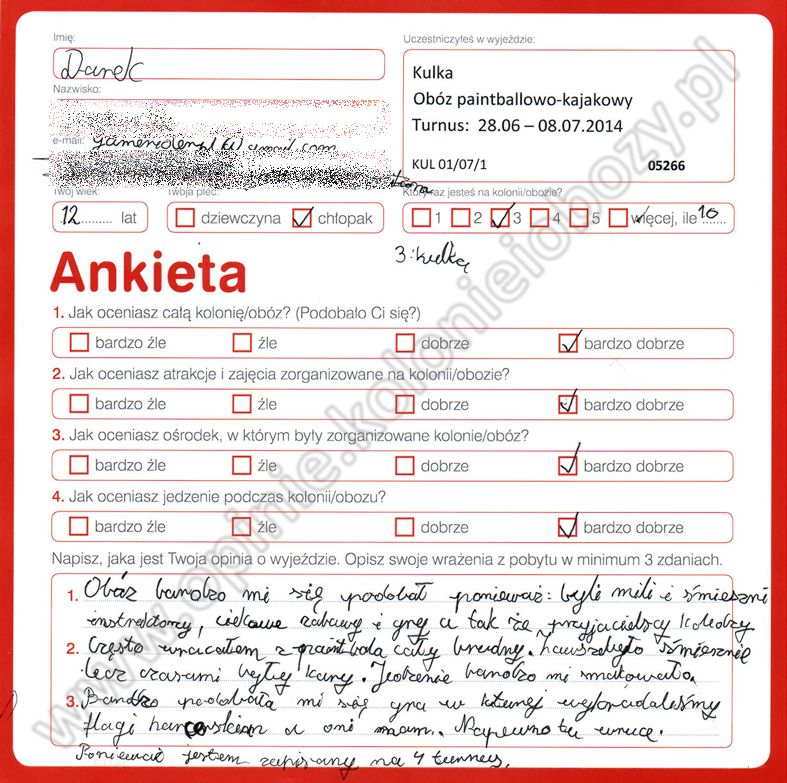 Imię:
Uczestniczyłeś w wyjeździe:
Darek
Kulka
Nazwisko:
Obóz paintballowo-kajakowy
Turnus: 28.06 – 08.07.2014
e-mail:
KUL 01/07/1 05266
Twój wiek: Twoja płeć: Który raz jesteś na kolonii/obozie?
12 lat dziewczyna chłopak 1 2 3 4 5 więcej, ile 10
3 kulkę
Ankieta
1. Jak oceniasz całą kolonię/obóz? (Podobało Ci się?)
bardzo źle źle dobrze bardzo dobrze
2. Jak oceniasz atrakcje i zajęcia zorganizowane na kolonii/obozie?
bardzo źle źle dobrze bardzo dobrze
3. Jak oceniasz ośrodek, w którym były zorganizowane kolonie/obóz?
bardzo źle źle dobrze bardzo dobrze
4. Jak oceniasz jedzenie podczas kolonii/obozu?
bardzo źle źle dobrze bardzo dobrze
Napisz, jaka jest Twoja opinia o wyjeździe. Opisz swoje wrażenia z pobytu w minimum 3 zdaniach.
1. Obóz bardzo mi się podobał ponieważ: byli mili i śmieszni
instruktorzy, ciekawe zabawy i gry a tak że przyjacielscy koledzy
2. Często wracałem z paintbola cały brudny. było śmiesznie
lecz czasami były kary. Jedzenie bardzo mi smakowało.
3. Bardzo podobała mi się gra w której wykradaliśmy
flagi harcerskim a oni nam. Napewno tu wrucę.
Ponieważ jestem zapisany na 4 turnus.
www.opinie.kolonieiobozy.pl